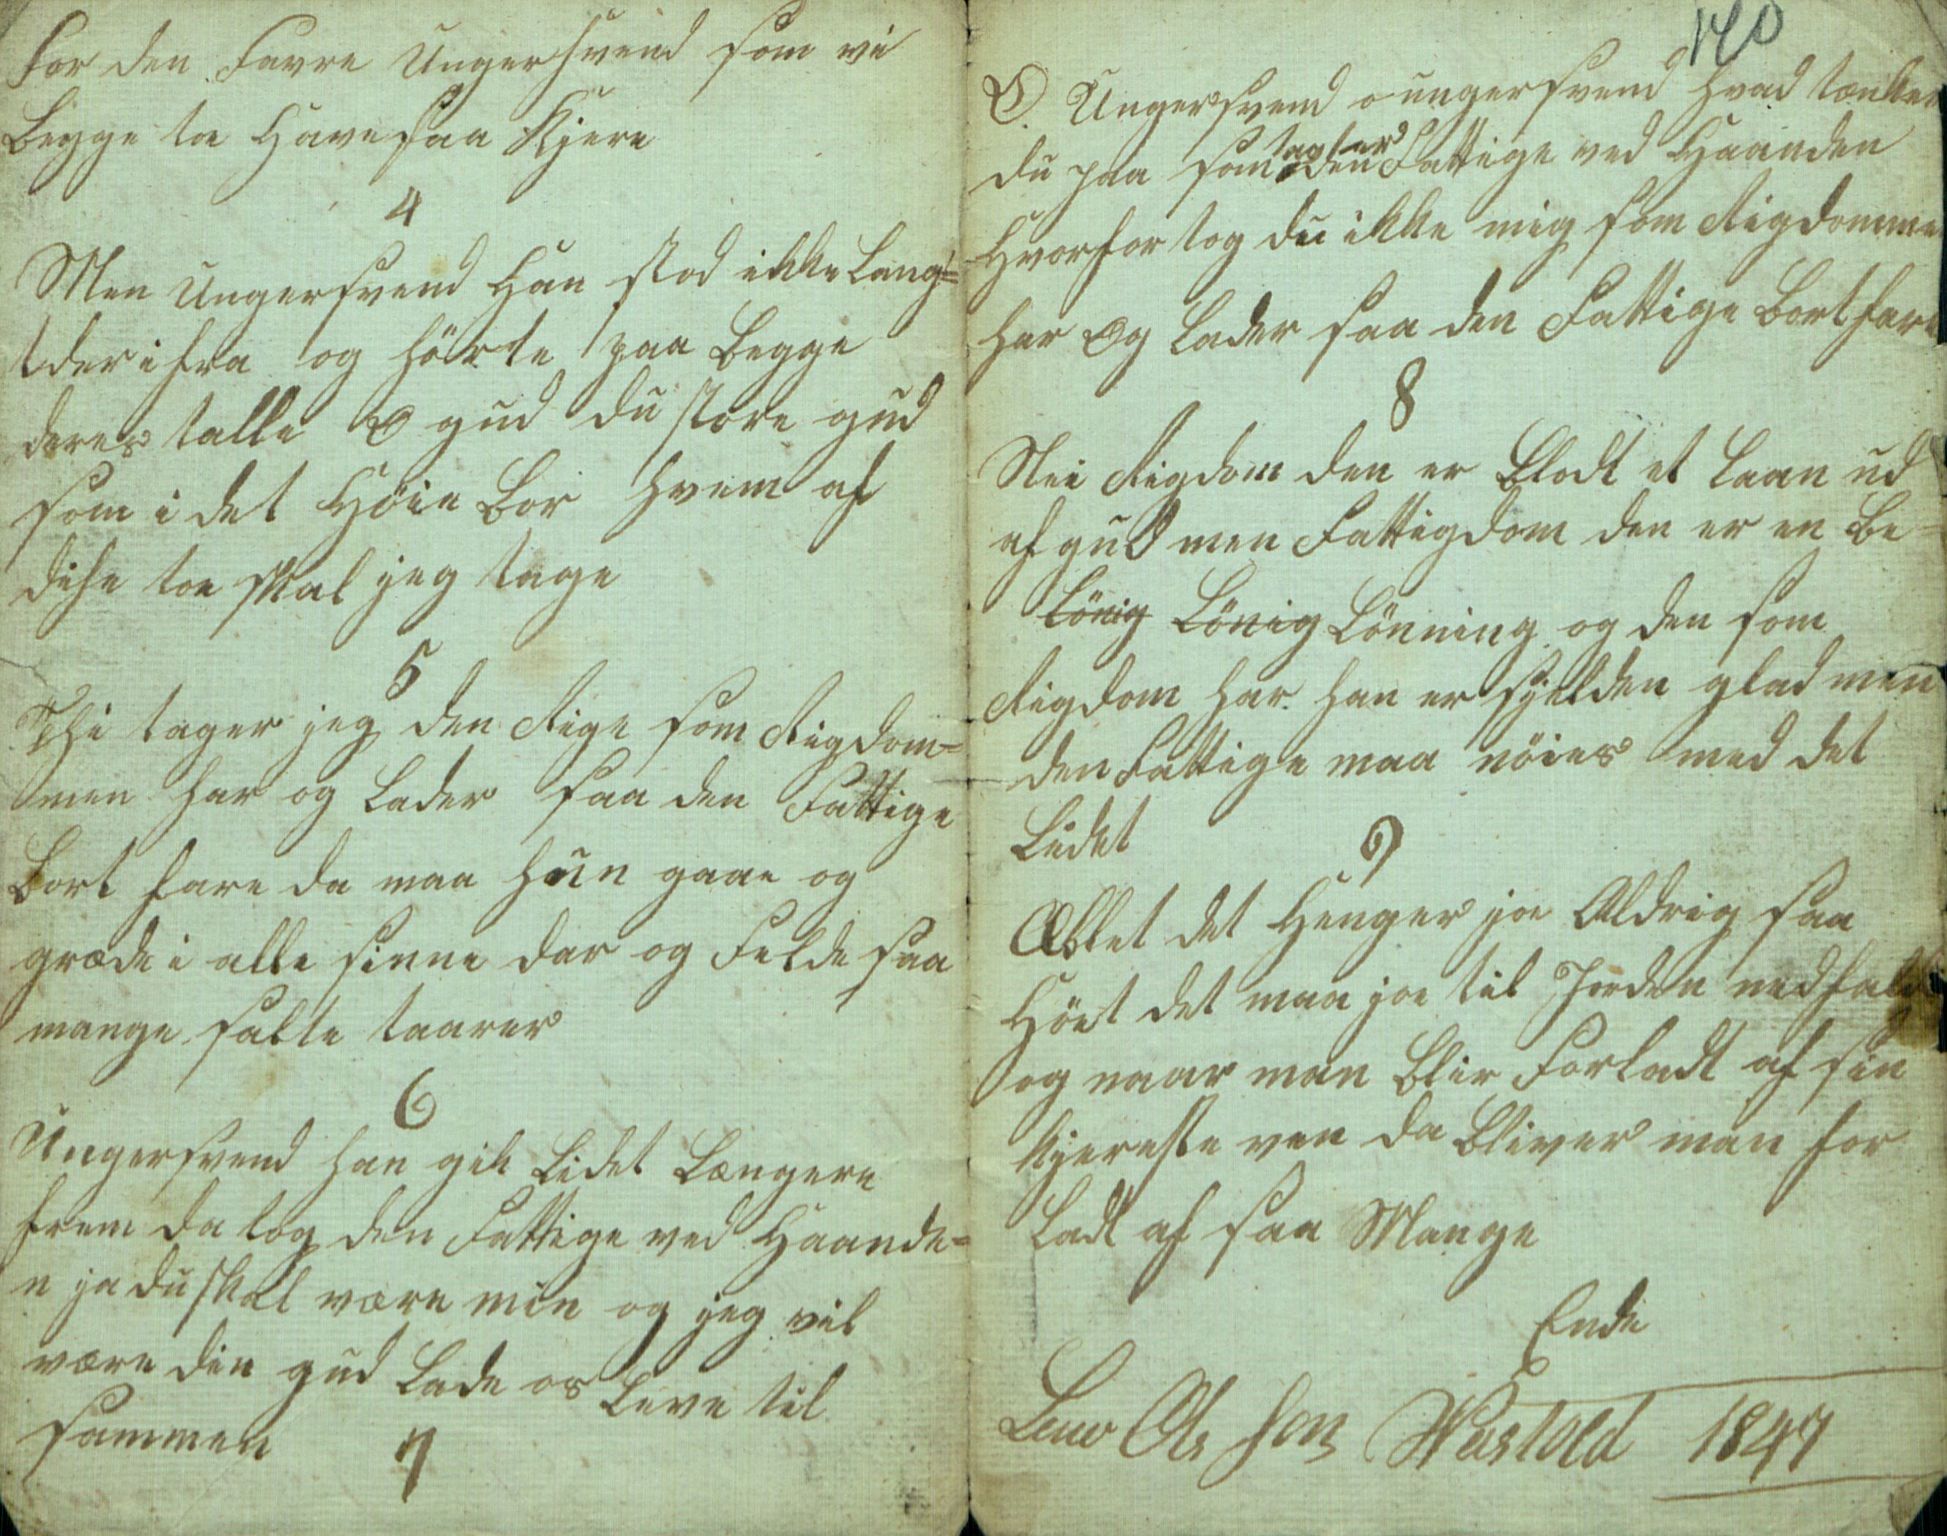 for den Favre Ungersvend som vi
Begge toe Have saa Kjere
4
Men Ungersvend Han stod ikke Lang=
t der ifra og hörte paa Begge
deres talle O gud du store gud
som i det Höie Bor hvem af
dise toe skal jeg tage
5
Thi tager jeg den Rige som Rigdom=
men har og Lader saa den Fattige
Bort fare da maa hun gaae og
græde i alle sinne dar og Felde saa
mange salte taarer
6
Ungersvend han gik Lidet Længere
frem da tog den Fattige ved Haande=
n ja du skal være min og jeg vil
være din gud Lade os Leve til
sammen
7
140
O Ungersvend o ungersvend hvad tænker
du paa som tagher den Fattige ved Haanden
Hvorfor tog du ikke mig som Rigdomme
har Og Lader saa den Fattige Bortfare
8
Nei Rigdom den er Blodt et Laan ud
af gud men Fattigdom den er en Be=
Lönig Lönig Lönning og den som
Rigdom har han er sjelden glad men
den Fattige maa nöies med det
Lidet
9
Æblet det Henger joe Aldrig saa
Höit det maa joe til Jorden nedfalde
og naar man Blir Forladt af sin
kjereste ven da Bliver man for
Ladt af saa Mange
Ende
Ols son 1847